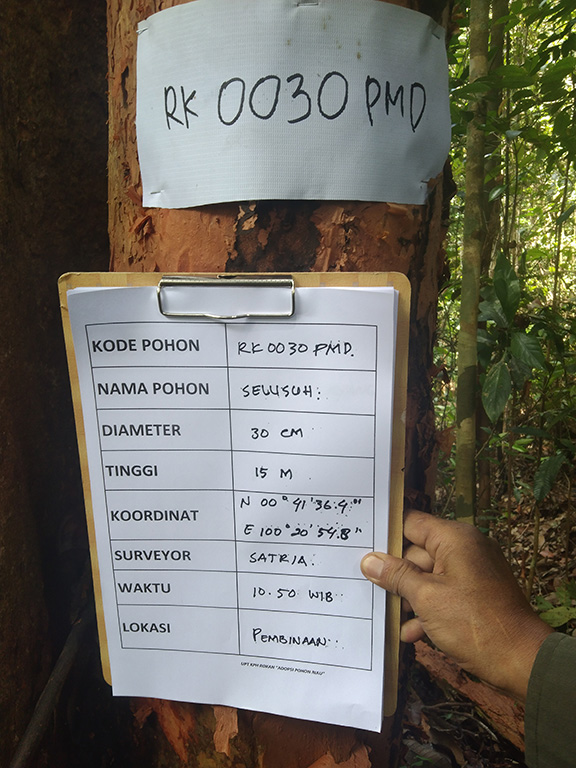 RK 0030 PMD
KODE POHON RK 0030 PMD.
NAMA POHON SELUSUH:
DIAMETER 30 CM
TINGGI 15 M
KOORDINAT N 00° 41' 36.4"
E 100° 20' 54.8"
SURVEYOR SATRIA.
WAKTU 10.50 WIB
LOKASI PEMBINAAN
UPT KPH ROKAN "ADOPSI POHON RIAU"